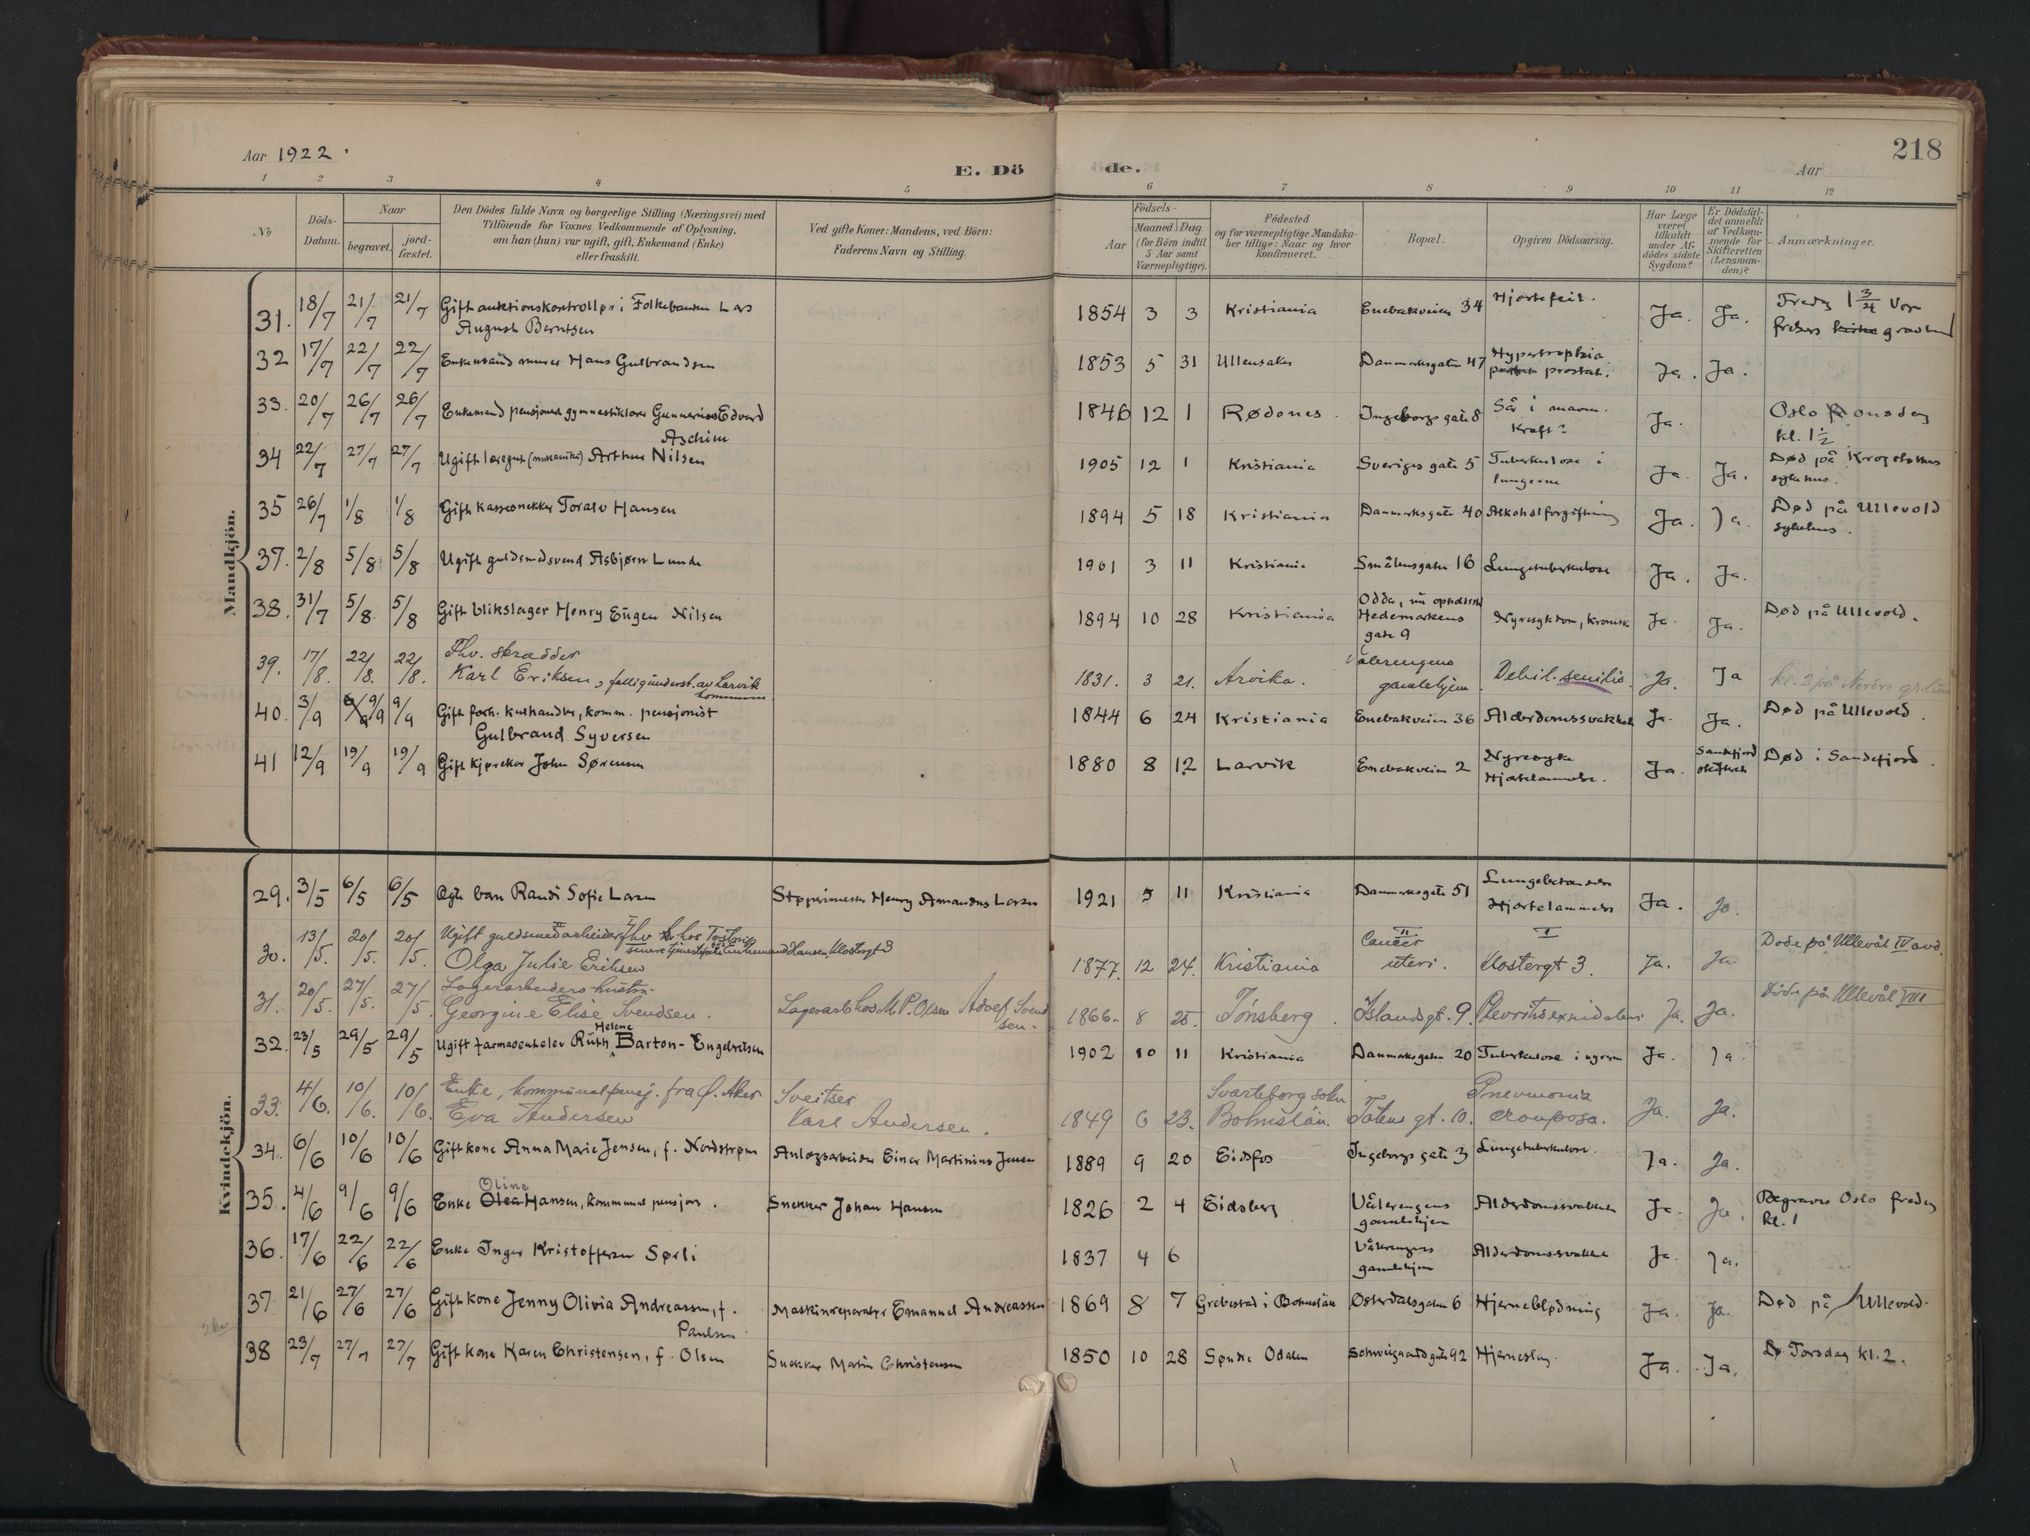 218
Aar 1922
E. Dö
de.
Aar
1 2 3 4 5 6 7 8 9 10 11 12
No
Döds-Datum.
Naar
begravet.
jordfæstet.
Den Dödes fulde Navn og borgerlige Stilling (Næringsvei) med
Tilföiende for Voxnes Vedkommende af Oplysning,
om han (hun) var ugift, gift, Enkemand (Enke)
eller fraskilt.
Ved gifte Koner: Mandens, ved Börn:
Faderens Navn og Stilling.
Födsels-
Aar
Maaned
Dag
(for Börn indtil
5 Aar samt
Værnepligtige).
Födested
og for værnepligtige Mandska-
ber tillige: Naar og hvor
konfirmeret.
Bopæl.
Opgiven Dödsaarsag.
Har Læge
været
tilkaldt
under Af-
dödes sidste
Sygdom?
Er Dödsfal-
det anmeldt
af Vedkom-
mende for
Skifteretten
(Lensman-
den)?
Anmærkninger.
Mandkjön.
31. 18/7 21/7 21/7 Gift auktionskontrollør i Folkebanken Lars
August Berntsen
1854 3 3 Kristiania Enebakveien 34 Hjertefeil. Ja. Ja. Fredag 1 3/4 Vor
frelsers kirke gravlund
32 17/7 22/7 22/7 Enkemand murer Hans Gulbrandsen
1853 5 31 Ullensaker Danmarksgaten 47 Hypertrophia
prostat. Ja. Ja.
33. 20/7 26/7 26/7 Enkemand pensjonert gymnastiklærer Gunnerius Edvard
Aschim
1846 12 1 Rødenes. Ingeborgs gate 8 Sår i maven.
Kræft? Ja. Oslo onsdag
kl. 1 1/2
34 22/7 27/7 27/7 Ugift læregut (mekaniker) Arthur Nilsen
1905 12 1 Kristiania Sveriges gate 5 Tuberkulose i
lungerne Ja. Ja. Død på Krogstøttens
sykehus.
35 26/7 1/8 1/8 Gift kassesnekker Toralv Hansen
1894 5 18 Kristiania Danmarksgate 40 Alkoholforgiftning Ja. Ja. Død på Ullevold
sykehus.
37. 2/8 5/8 5/8 Ugift guldsmedsvend Asbjørn Lunde
1901 3 11 Kristiania Smålensgaten 16 Lungetuberkulose Ja. Ja.
38. 31/7 5/8 5/8 Gift blikslager Henry Eugen Nilsen
1894 10 28 Kristiania Odda, nu
Hedemarkens
gate 9 Nyresykdom, kronisk Ja. Ja. Død på Ullevold.
39. 17/8. 22/8. 22/8. Fhv. skrædder
Karl Eriksen, fattigunderst. av Larvik
kommune
1831. 3 21. Arvika. Vålerengens
gamlehjem Debil. senilis. Ja. Ja kl. 2 på Nordre gr.lund
40. 3/9 9/9 9/9 Gift forh. kulhandler, komm. pensjonist
Gulbrand Syversen
1844 6 24 Kristiania Enebakveien 36 Alderdomssvakhet Ja. Ja. Død på Ullevold.
41 12/9 19/9 19/9 Gift kjørekar John Sørensen
1880 8 12 Larvik Enebakveien 2 Nyresyke
Hjertelammelse. Ja. Sandefjord
skifteret Død i Sandefjord.
Kvindekjön.
29. 3/5 6/5 6/5 Egte barn Randi Sofie Larsen Støperimester Henry Amandus Larsen
1921 5 11 Kristiania Danmarksgate 51 Lungebetændelse
Hjertelammelse Ja. Ja.
30. 13/5. 20/5. 20/5. Ugift guldsmedarbeider II fhv. hos Tostrup I
senere tjenestepike hos Enkemand Hansen Klostergt 3
Olga Julie Eriksen
1877. 12 24. Kristiania Cancer II
uteri. I
Klostergt 3. Ja. Ja Døde på Ullevål IV avd.
31. 20/5. 27/5. 27/5. Lagerarbeiders hustru
Georgine Elise Svendsen. Lagerarb. hos M. P. Olsen Adolf Svend
sen.
1866. 8 25. Tønsberg. Islandsgt. 9. Plevritis exsudativ. Ja. Ja. Døde på Ullevål VIII
32. 23/5 29/5 29/5 Ugift farmaceutelev Ruth Helene Barton-Engelretsen
1902 10 11 Kristiania Danmarksgaten 20 Tuberkulose i nyrern Ja. Ja
33. 4/6. 10/6. 10/6. Enke, kommunalpensj. fra Ø. Aker
Eva Andersen Sveitser
Karl Andersen.
1849 6 23. Svarteborg sokn
Bohuslän. Totens gt. 10. Pneumonia
crouposa. Ja. Ja.
34. 6/6 10/6 10/6 Gift kone Anna Marie Jensen, f. Nordstrøm Anlægsarbeider Einar Martinius Jensen
1889 9 20 Eidsfos Ingeborgs gate 3 Lungetuberkulose. Ja. Ja.
35. 4/6 9/6 9/6 Enke Olea Oline Hansen, kommunal pensjon. Snekker Johan Hansen
1826 2 4 Eidsberg Vålerengens
gamlehjem Alderdomssvakhet Ja. Ja. Begraves Oslo fredag
kl. 1
36. 17/6 22/6 22/6 Enke Inger Kristoffersen Sørli
1837 4 6 Vålerengens
gamlehjem Alderdomssvakhet Ja. Ja.
37. 21/6 27/6 27/6 Gift kone Jenny Olivia Andreassen, f.
Paulsen Maskinreparatør Emanuel Andreassen
1869 8 7 Grebestad i Bohuslän Østerdalsgaten 6 Hjerneblødning Ja. Ja. Død på Ullevold.
38 23/7 27/7 27/7 Gift kone Karen Christensen, f. Olsen Snekker Martin Christensen
1850 10 28 Søndre Odalen Schweigaardsgate 92 Hjerneslag Ja. Ja. Torsdag kl. 2.